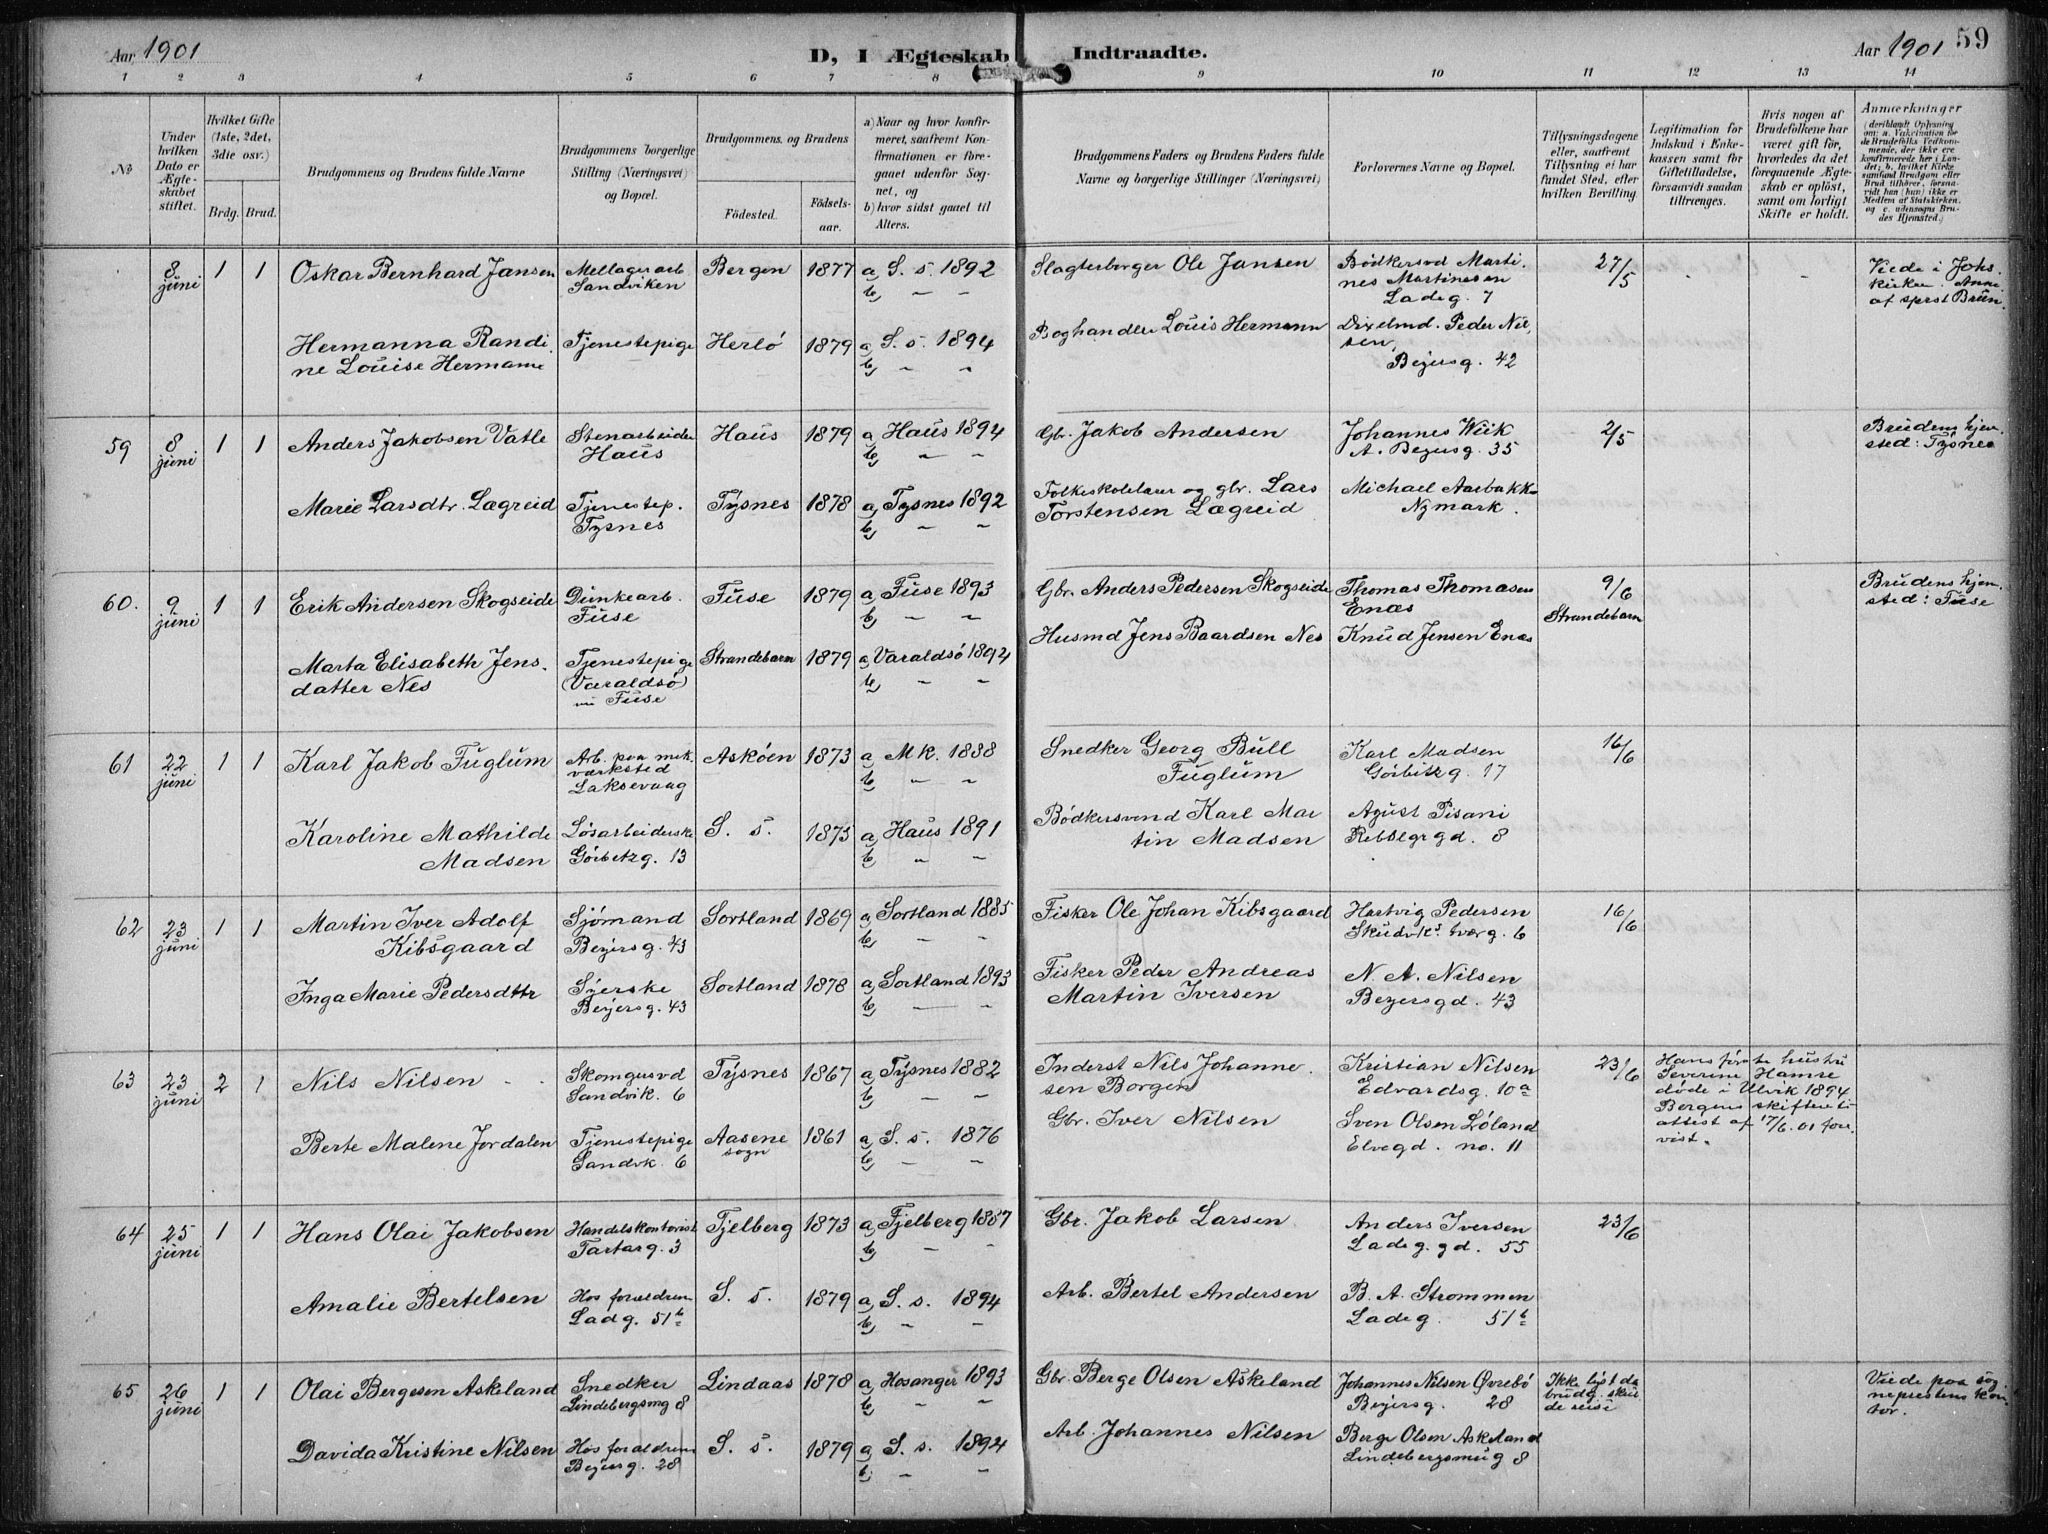 Aar 1901
D, I Ægteskab Indtraadte.
Aar 1901 59
1 2 3 4 5 6 7 8 9 10 11 12 13 14
No
Under hvilken Dato er Ægteskabet stiftet.
Hvilket Gifte (1ste, 2det, 3die osv.)
Brdg. Brud.
Brudgommens og Brudens fulde Navne
Brudgommens borgerlige Stilling (Næringsvei) og Bopæl.
Brudgommens og Brudens
Födested.
Födselsaar.
a) Naar og hvor konfirmeret, saafremt Konfirmationen er foregaaet udenfor Sognet, og
b) hvor sidst gaaet til Alters.
Brudgommens Faders og Brudens Faders fulde Navne og borgerlige Stillinger (Næringsvei)
Forlovernes Navne og Bopæl.
Tillysningsdagene eller, saafremt Tillysning ei har fundet Sted, efter hvilken Bevilling
Legitimation for Indskud i Enkekassen samt for Giftetilladelse, forsaavidt saadan tiltrænges.
Hvis nogen af Brudefolkene har været gift för, hvorledes da det foregaaende Ægteskab er oplöst, samt om lovligt Skifte er holdt.
Anmærkninger
8 juni 1 1 Oskar Bernhard Jansen
Mellagerarb. Sandviken
Bergen 1877 a) S. s. 1892
b) " "
Slagterborger Ole Jansen
Bödkersvd Martines Martinesen
Ladeg. 7
27/5
Viede i Johs. kirken.
Hermanna Randine Louise Hermann
Tjenestepige Herlö 1879 a) S. s. 1894
b) " "
Boghandler Louis Hermann
Peder Nilsen,
Beyersg. 42
59 8 juni 1 1 Anders Jakobsen Vatle
Stenarbeider Haus
Haus 1879 a) Haus 1894
b) " "
Gbr. Jakob Andersen
Johannes Wiik
A. Beyersg. 35
2/5
Brudens hjemsted: Tysnes
Marie Larsdtr. Lægreid
Tjenestep. Tysnes
Tysnes 1878 a) Tysnes 1892
b) " "
Folkeskolelærer og gbr. Lars Torstensen Lægreid
Michael Aarbakke
Nymark.
60. 9 juni 1 1 Erik Andersen Skogseide
Dünkearb. Fuse
Fuse 1879 a) Fuse 1893
b) " "
Gbr. Anders Pedersen Skogseide
Thomas Thomasen Enæs
9/6 Strandebarm
Brudens hjemsted: Fuse
Marta Elisabeth Jensdatter Nes
Tjenestepige (Varaldsö) nu Fuse
Strandebarm 1879 a) Varaldsö 1894
b) " "
Husmd Jens Baardsen Nes
Knud Jensen Enæs
61 22 juni 1 1 Karl Jakob Fuglum
Arb. paa mek. værksted Laksevaag
Asköen 1873 a) M.k. 1888
b) " "
Snedker Georg Bull Fuglum
Karl Madsen
Görbitzg. 17
16/6
Karoline Mathilde Madsen
Lösarbeiderske Görbitzg. 13
S. s. 1873 a) Haus 1891
b) " "
Bödkersvend Karl Martin Madsen
Agust Pisani
8
62 23 juni 1 1 Martin Iver Adolf Kibsgaard
Sjömand Beyersg. 43
Sortland 1869 a) Sortland 1885
b) " "
Fisker Ole Johan Kibsgaard
Hartvig Pedersen
Skudvks. tværg. 6
16/6
Inga Marie Pedersdttr
Syerske Beyersg. 43
Sortland 1878 a) Sortland 1893
b) " "
Fisker Peder Andreas Martin Iversen
N. A. Nilsen
Beyersgd. 43
63 23 juni 2 1 Nils Nilsen
Skomgusvd Sandvik. 6
Tysnes 1867 a) Tysnes 1882
b) " "
Inderst Nils Johannesen Borgen
Kristian Nilsen
Edvardsg. 10a
23/6
Hans förste hustru Severine Hamre döde i Ulvik 1894 Bergens skifteretsattest af 17/6.01 forevist.
Berte Malene Jordalen
Tjenestepige Sandvk. 6
Aasene sogn 1861 a) S. s. 1876
b) " "
Gbr. Iver Nilsen
Sven Olsen Löland
Elvegd. no. 11
64 25 juni 1 1 Hans Olai Jakobsen
Handelskontorist Tartarg. 3
Fjelberg 1873 a) Fjelberg 1887
b) " "
Gbr. Jakob Larsen
Anders Iversen
Ladeg.gd. 55
23/6
Amalie Bertelsen
Hos forældrene Ladg. 51b
S. s. 1879 a) S. s. 1894
b) " "
Arb. Bertel Andersen
B. A. Strommen
Ladeg. 51b
65 26 juni 1 1 Olai Bergesen Askeland
Snedker Lindebergsmg 8
Lindaas 1878 a) Hosanger 1893
b) " "
Gbr. Berge Olsen Askeland
Johannes Nilsen Övrebö
Beyersg. 28
Ikke lyst da brudg. skulde reise
Viede paa sogneprestens kontor.
Davida Kristine Nilsen
Hos forældrene Beyersg. 28
S. s. 1879 a) S. s. 1894
b) " "
Arb. Johannes Nilsen
Berge Olsen Askeland
Lindebergsmug 8